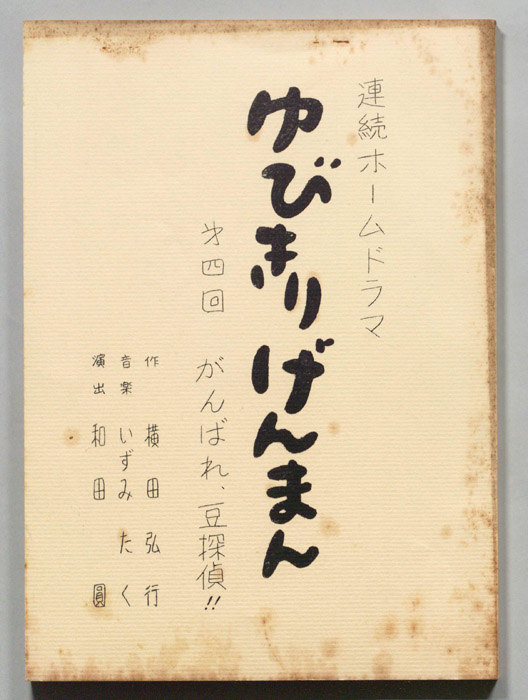 連続ホームドラマ
ゆびきりげんまん
第四回 がんばれ、豆探偵!!
作 横田弘行
音楽 いずみたく
演出 和田圓